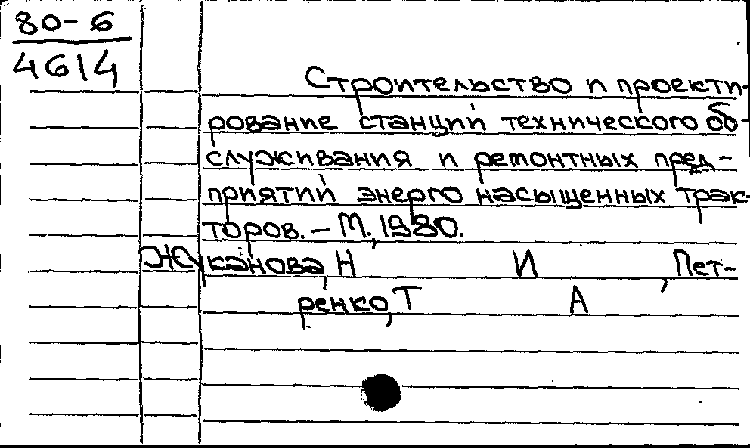 80-6
4614
Строительство и проекти-
рование станций технического об-
служивания и ремонтных пред-
приятий энерго насыщенных трак-
торов. - М., 1980.
Жуканова, Н И , Пет-
ренко, Т А